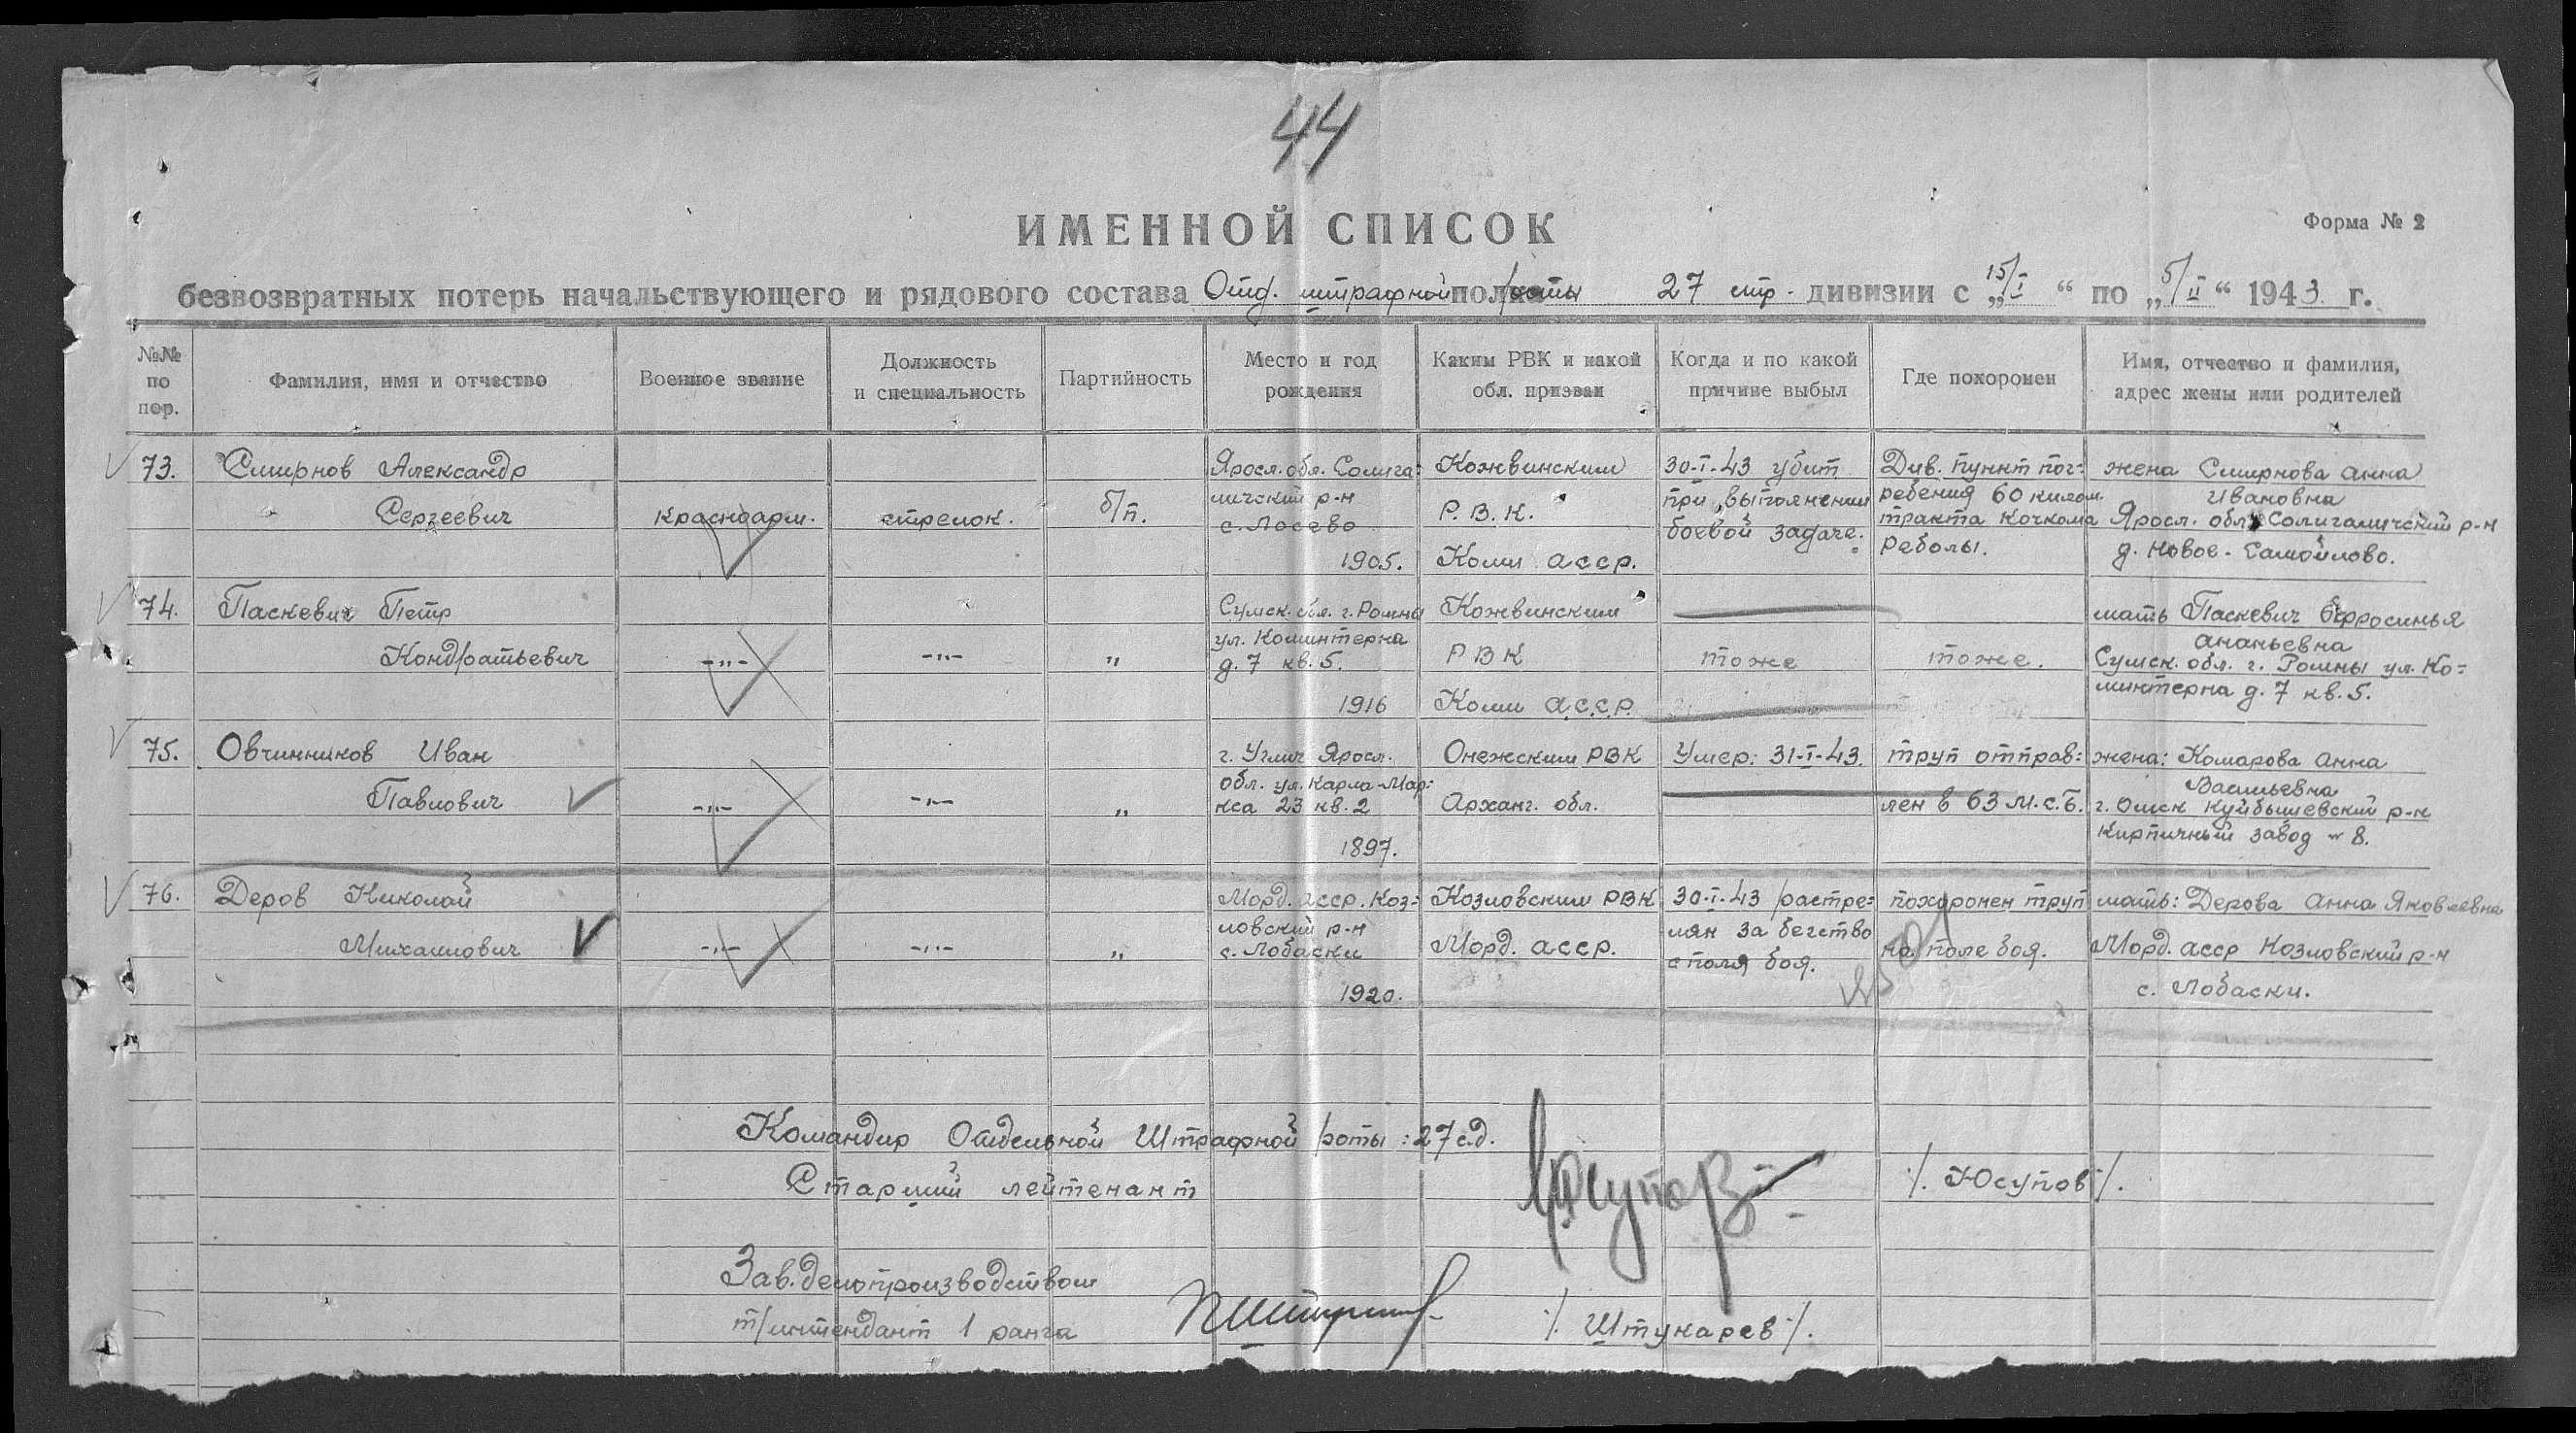 44
ИМЕННОЙ СПИСОК
Форма № 2
безвозвратных потерь начальствующего и рядового состава Отд. штрафной полроты 27 стр. дивизии с „15/I“ по „5/II“ 1943 г.
№№ по пор.
Фамилия, имя и отчество
Военное звание
Должность и специальность
Партийность
Место и год рождения
Каким РВК и какой обл. призван
Когда и по какой причине выбыл
Где похоронен
Имя, отчество и фамилия, адрес жены или родителей
73.
Смирнов Александр
Сергеевич
красноарм.
стрелок.
б/п.
Яросл. обл. Солига=
личский р-н
с. Лосево
1905.
Кожвинским
Р.В.К.
Коми асср.
30-I-43 убит
при выполнении
боевой задаче.
Див. пункт пог=
ребения 60 килом.
тракта Кочкома
Реболы.
жена Смирнова Анна
Ивановна
Яросл. обл. Солигаличский р-н
д. Новое-Самойлово.
74.
Паскевич Петр
Кондратьевич
-„-
-„-
„
Сумск. обл. г. Ромны
ул. Коминтерна
д. 7 кв. 5.
1916
Кожвинским
РВК
Коми а.с.с.р.
тоже
тоже.
мать Паскевич Ефросинья
Ананьевна
Сумск. обл. г. Ромны ул. Ко=
минтерна д. 7 кв. 5.
75.
Овчинников Иван
Павлович
-„-
-„-
„
г. Углич Яросл.
обл. ул. Карла-Мар=
кса 23 кв. 2
1897.
Онежским РВК
Арханг. обл.
Умер: 31-I-43.
труп отправ=
лен в 63 м.с.б.
жена: Комарова Анна
Васильевна
г. Омск Куйбышевский р-н
Кирпичный завод № 8.
76.
Деров Николай
Михаилович
-„-
-„-
„
Морд. асср. Коз=
ловский р-н
с. Лобаски
1920.
Козловским РВК
Морд. асср.
30-I-43 растре=
лян за бегство
с поля боя.
похоронен труп
на поле боя.
мать: Дерова Анна Яковлевна
Морд. асср Козловский р-н
с. Лобаски.
Командир Отдельной Штрафной роты: 27 с.д.
Старший лейтенант
Юсупов
/. Юсупов /.
Зав. делопроизводством
т/интендант 1 ранга
/. Штукарев /.